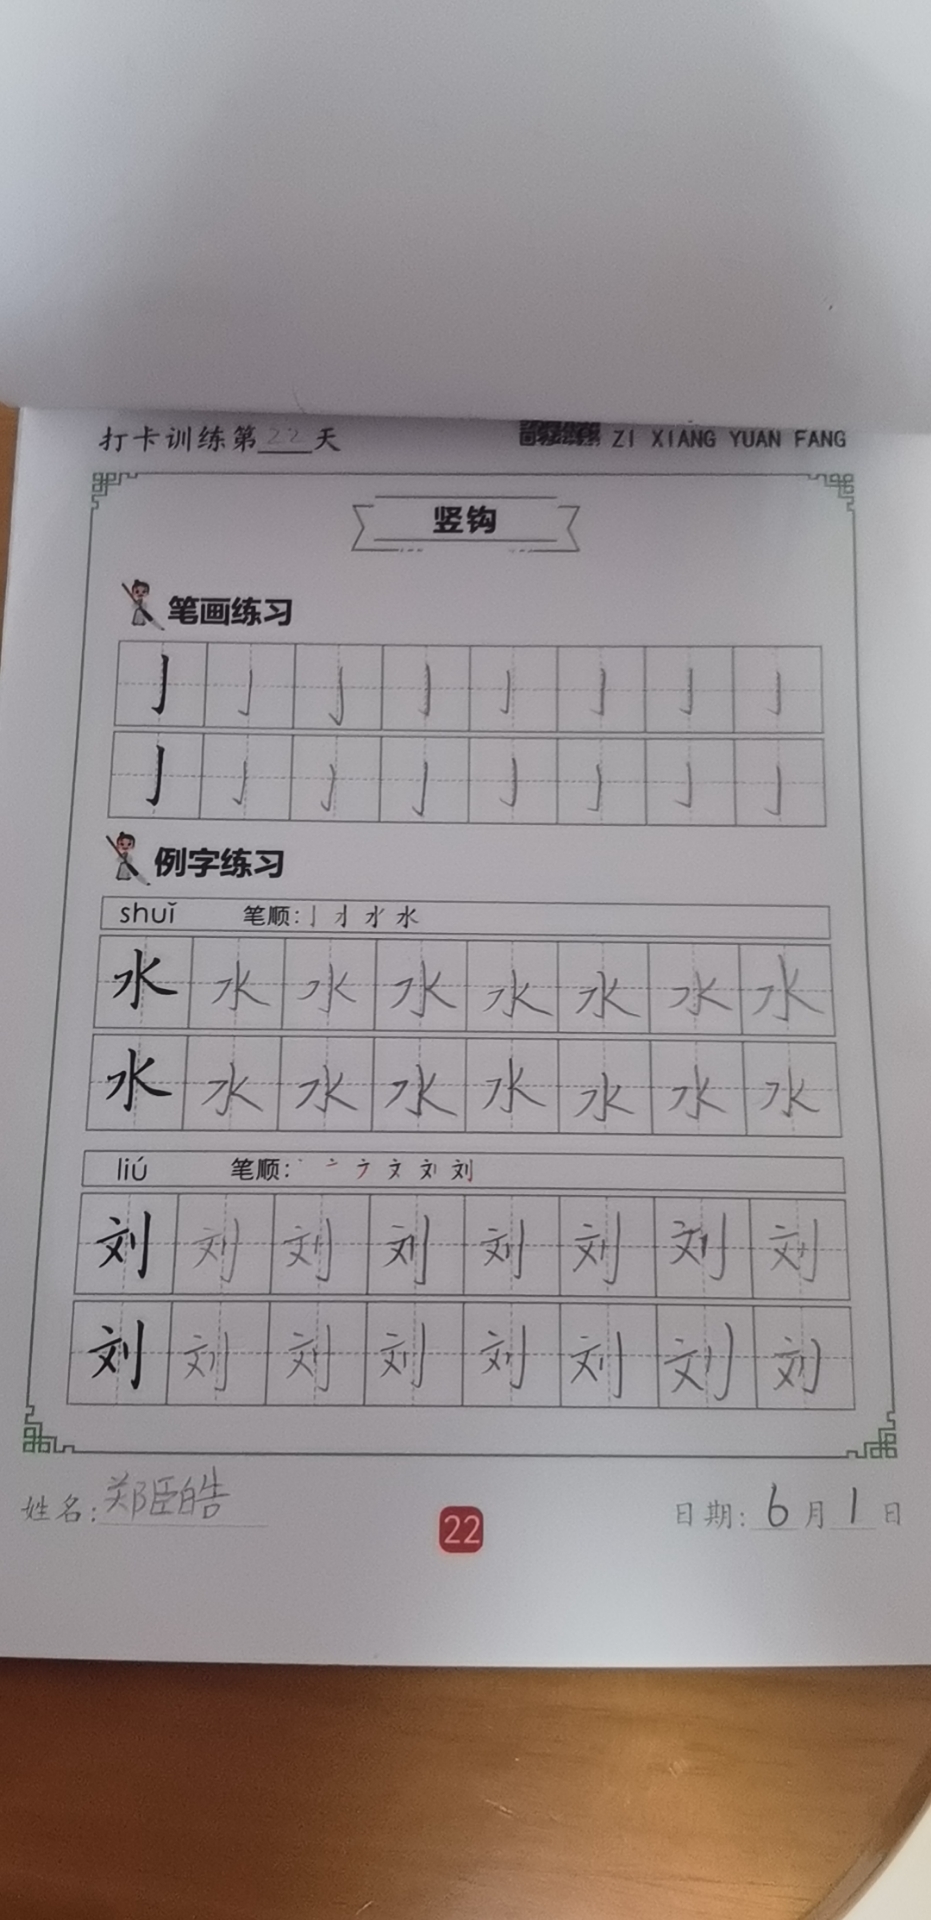 打卡训练第22天 ZI XIANG YUAN FANG
竖钩
笔画练习
亅亅亅亅亅亅亅亅
亅亅亅亅亅亅亅亅
例字练习
shuǐ 笔顺: 水
水水水水水水水水
水水水水水水水水
liú 笔顺: 文 刘
刘刘刘刘刘刘刘刘
刘刘刘刘刘刘刘刘
姓名:郑臣皓 22 日期:6月1日